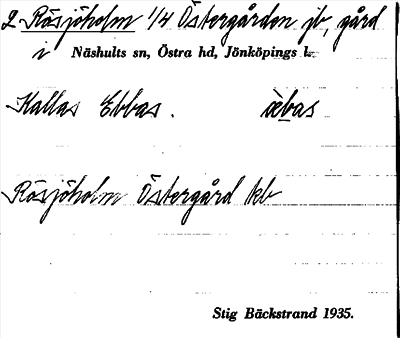 2 Rösjöholm 1/4 Östergården jb, gård
i Näshults sn, Östra hd, Jönköpings l.
Kallas Ebbas. ὲbas
Rösjöholm Östergård kb
Stig Bäckstrand 1935.